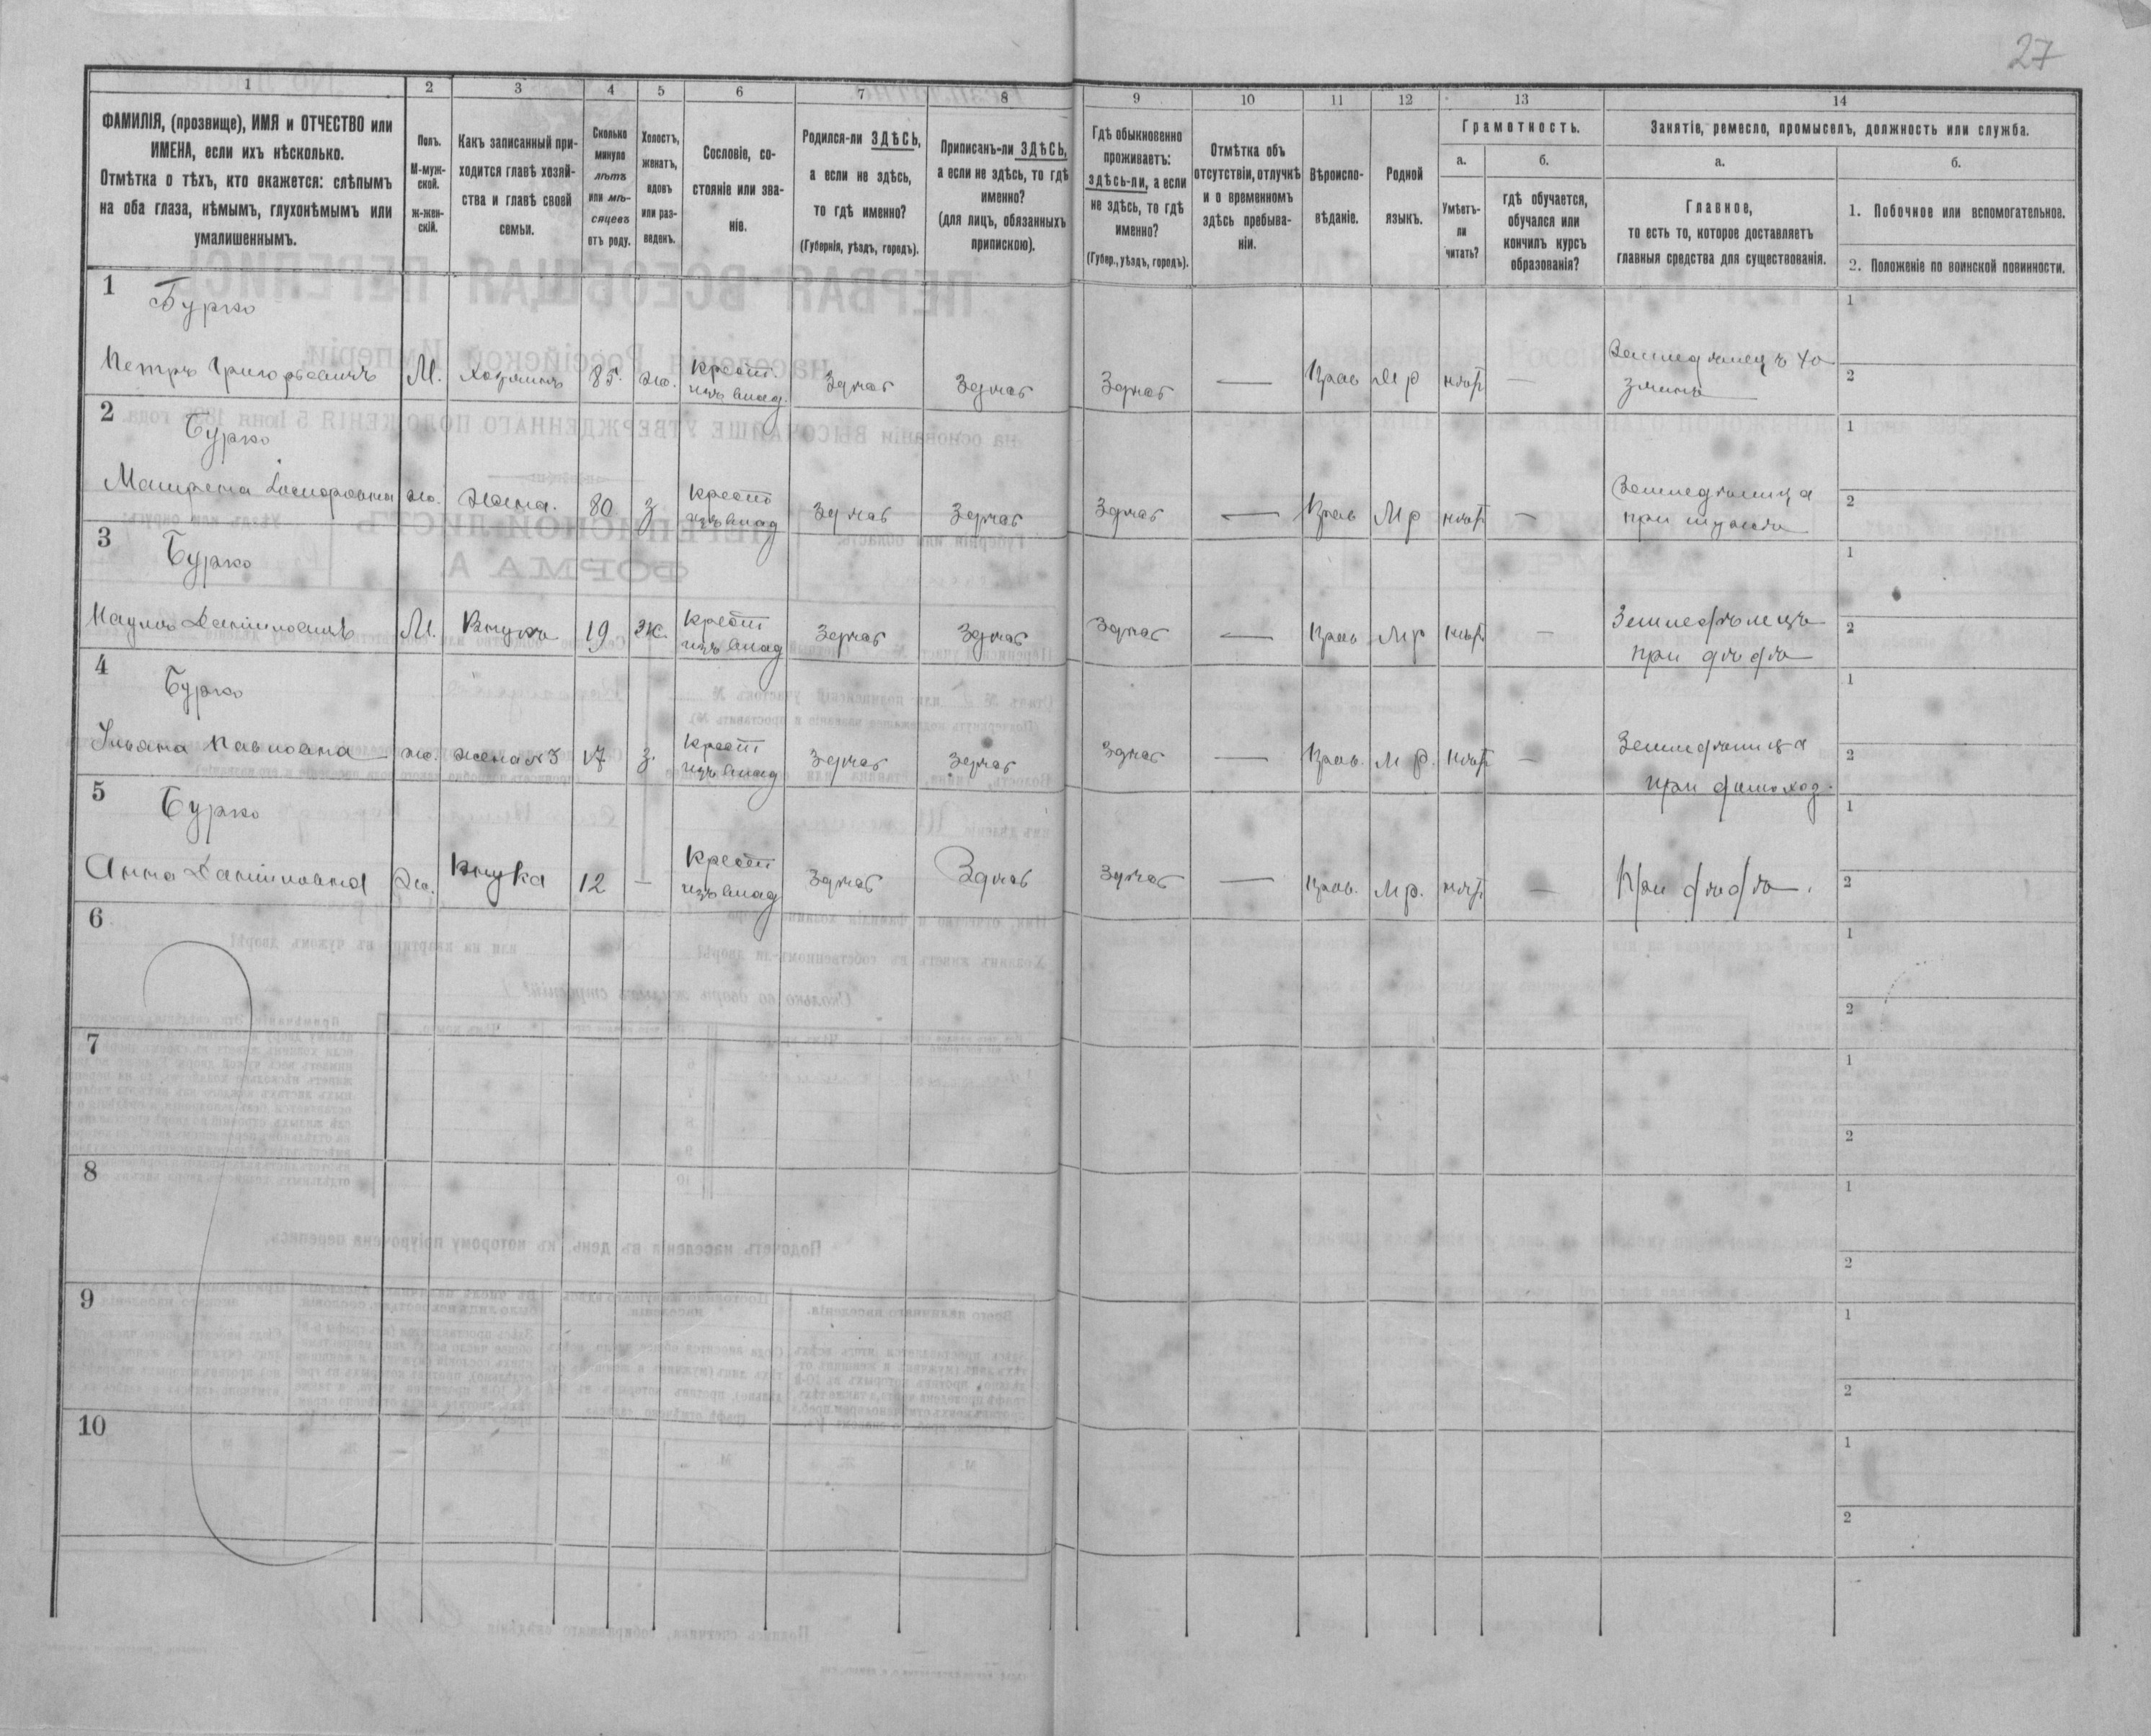 27
1 2 3 4 5 6 7 8 9 10 11 12 13 14
ФАМИЛІЯ, (прозвище), ИМЯ и ОТЧЕСТВО или
ИМЕНА, если ихъ нѣсколько.
Отмѣтка о тѣхъ, кто окажется: слѣпымъ
на оба глаза, нѣмымъ, глухонѣмымъ или
умалишеннымъ.
Полъ.
М-муж-
ской.
ж-жен-
скій.
Какъ записанный при-
ходится главѣ хозяй-
ства и главѣ своей
семьи.
Сколько
минуло
лѣтъ
или мѣ-
сяцевъ
отъ роду.
Холостъ,
женатъ,
вдовъ
или раз-
веденъ.
Сословіе, со-
стояніе или зва-
ніе.
Родился-ли ЗДѢСЬ,
а если не здѣсь,
то гдѣ именно?
(Губернія, уѣздъ, городъ).
Приписанъ-ли ЗДѢСЬ,
а если не здѣсь, то гдѣ
именно?
(для лицъ, обязанныхъ
припискою).
Гдѣ обыкновенно
проживаетъ:
ЗДѢСЬ-ЛИ, а если
не здѣсь, то гдѣ
именно?
(Губер., уѣздъ, городъ).
Отмѣтка объ
отсутствіи, отлучкѣ
и о временномъ
здѣсь пребыва-
ніи.
Вѣроиспо-
вѣданіе.
Родной
языкъ.
Грамотность.
а.
Умѣетъ-
ли
читать?
б.
гдѣ обучается,
обучался или
кончилъ курсъ
образованія?
Занятіе, ремесло, промыселъ, должность или служба.
а.
Главное,
то есть то, которое доставляетъ
главныя средства для существованія.
б.
1. Побочное или вспомогательное.
2. Положеніе по воинской повинности.
1 Бурко 1
Петръ Григорьевичъ М. хозяинъ 85. ж. крест. изъ влад. Здѣсь Здѣсь Здѣсь — Прав М р нѣт — Земледѣлецъ хо
зяинъ 2
2 Бурко 1
ж. жена. 80. з крест изъ влад Здѣсь Здѣсь Здѣсь — Прав М р нѣт — Земледѣлица
при мужѣ 2
3 Бурко 1
Даніиловичъ М. Внукъ 19. ж. крест изъ влад Здѣсь Здѣсь Здѣсь — Прав М р нѣт — Земледѣлецъ
при дѣдѣ 2
4 Бурко 1
Павловна ж. жена №3 17 з. крест изъ влад Здѣсь Здѣсь Здѣсь — Прав. М р. нѣт — Земледѣлица
при 2
5 Бурко 1
Анна Даніиловна ж. внука 12 — крест изъ влад Здѣсь Здѣсь Здѣсь — прав. М р. нѣт — При дѣдѣ. 2
6 1
2
7 1
2
8 1
2
9 1
2
10 1
2